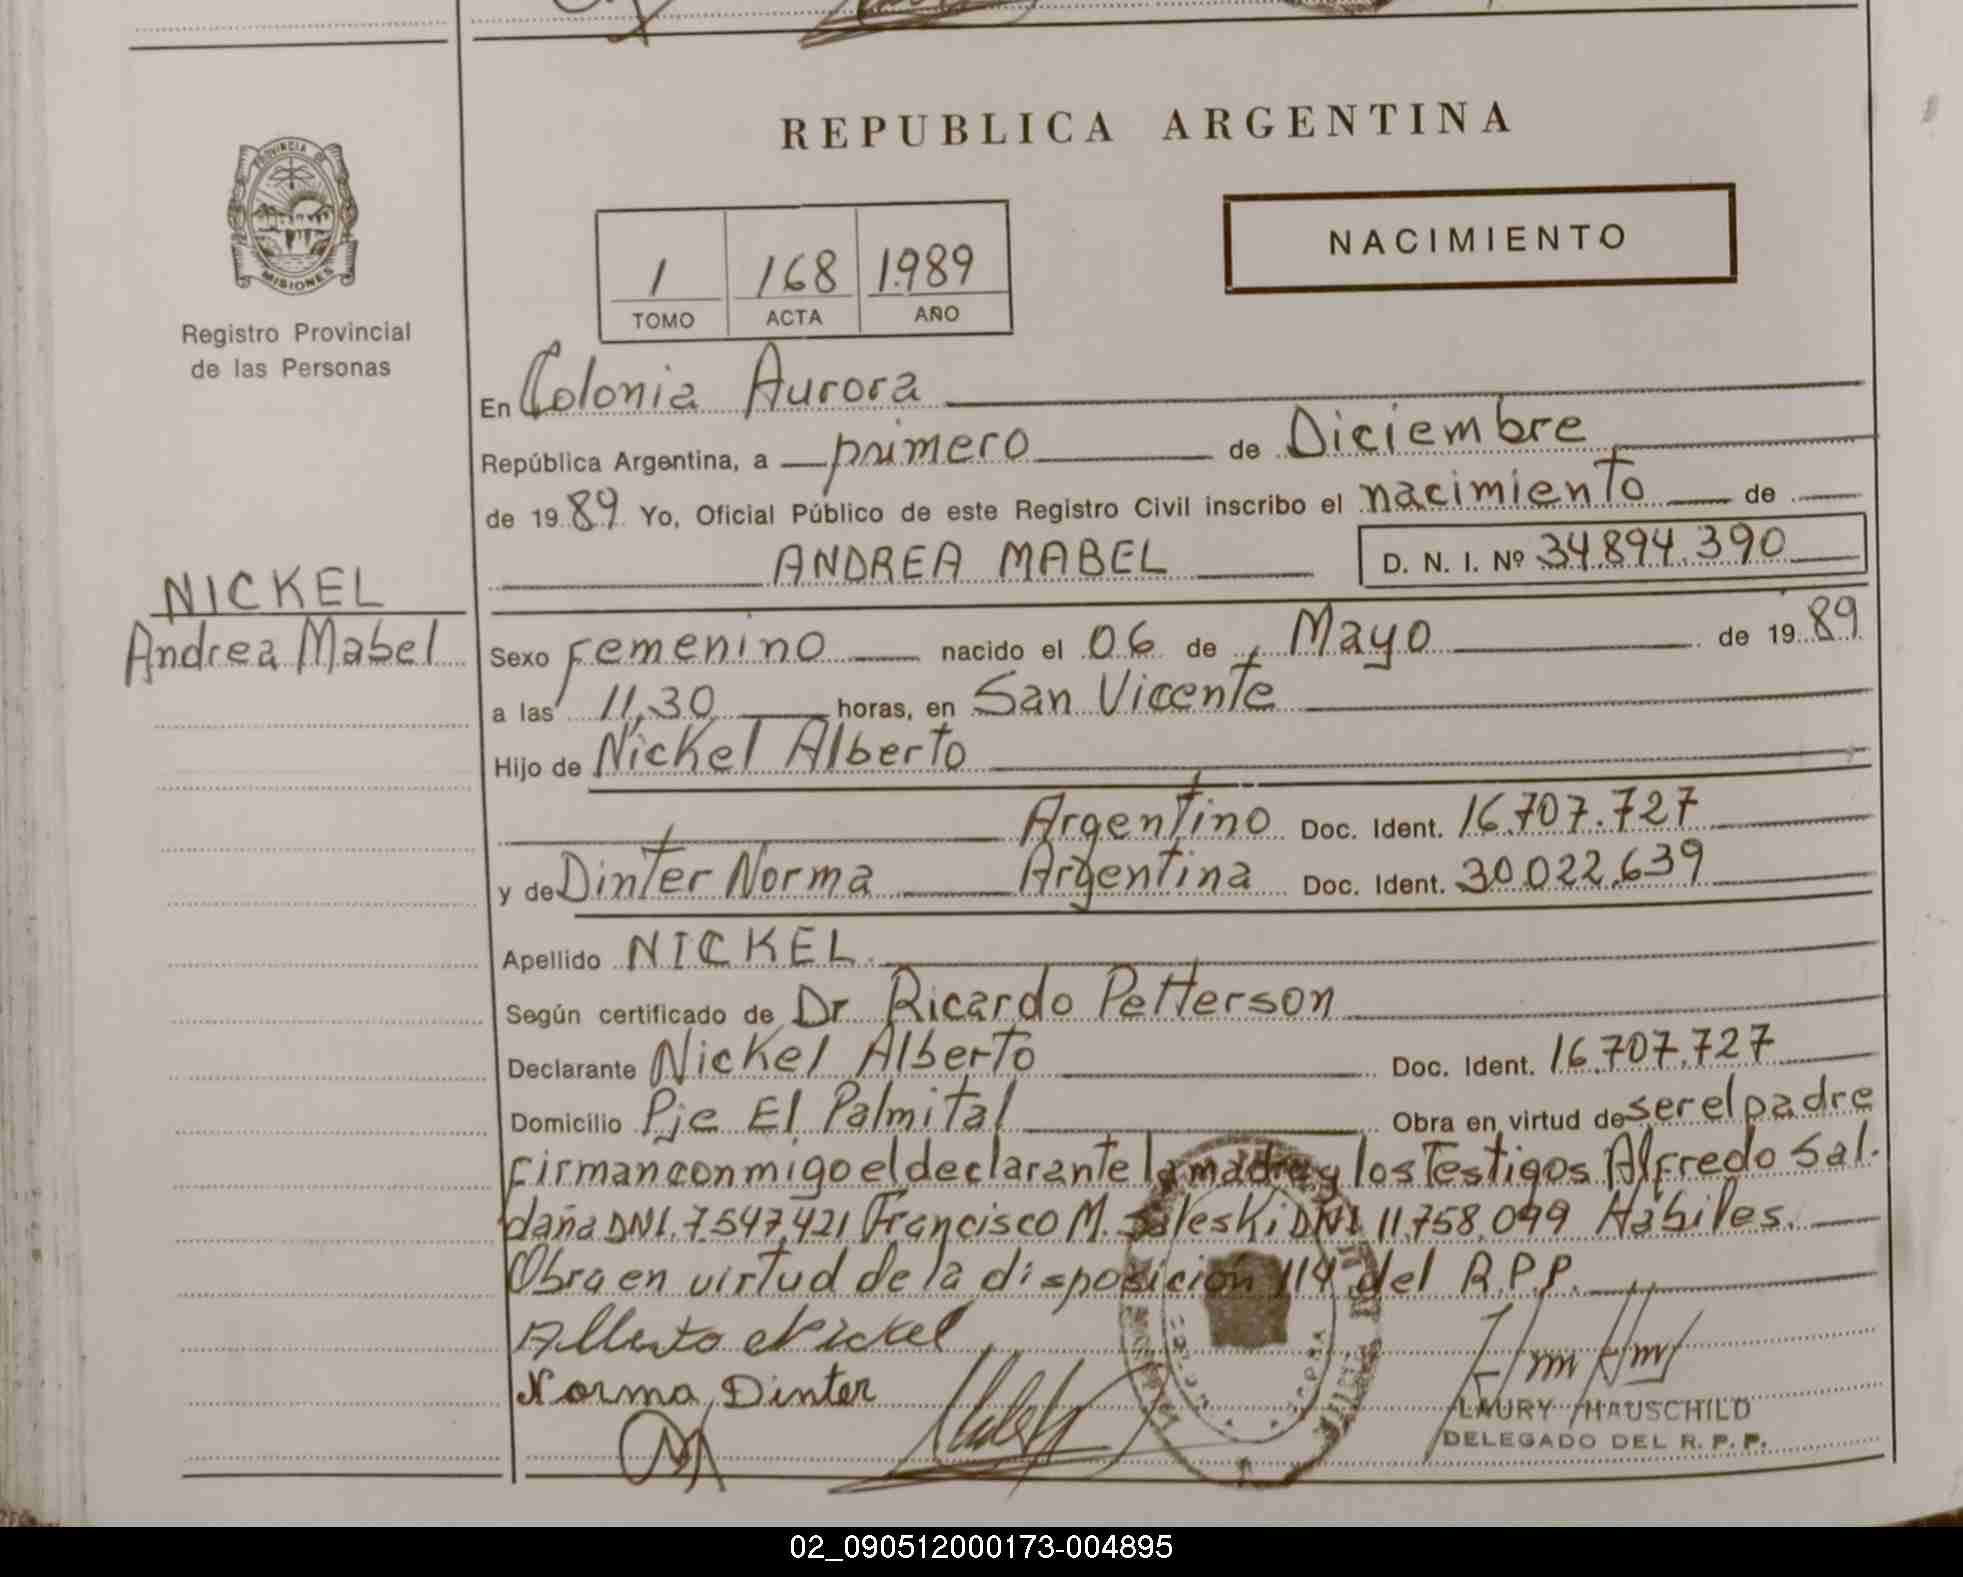 REPUBLICA ARGENTINA
PROVINCIA DE
MISIONES
Registro Provincial
de las Personas
1 168 1.989
TOMO ACTA AÑO
NACIMIENTO
En Colonia Aurora
República Argentina, a primero de Diciembre
de 19 89 Yo, Oficial Público de este Registro Civil inscribo el nacimiento de
ANDREA MABEL D. N. I. Nº 34.894.390
NICKEL
Andrea Mabel
Sexo Femenino nacido el 06 de Mayo de 19 89
a las 11,30 horas, en San Vicente
Hijo de Nickel Alberto
Argentino Doc. Ident. 16.707.727
y de Dinter Norma Argentina Doc. Ident. 30.022.639
Apellido NICKEL
Según certificado de Dr Ricardo Petterson
Declarante Nickel Alberto Doc. Ident. 16.707.727
Domicilio Pje El Palmital Obra en virtud de ser el padre
Firman conmigo el declarante la madre y los Testigos Alfredo Sal.
daña DNI. 7.547.421 Francisco M. Saleski DNI 11.758.099 Habiles.
Obra en virtud de la disposicion 114 del R.P.P.
Alberto Nickel
Norma Dinter
LAURY HAUSCHILD
DELEGADO DEL R. P. P.
02_090512000173-004895